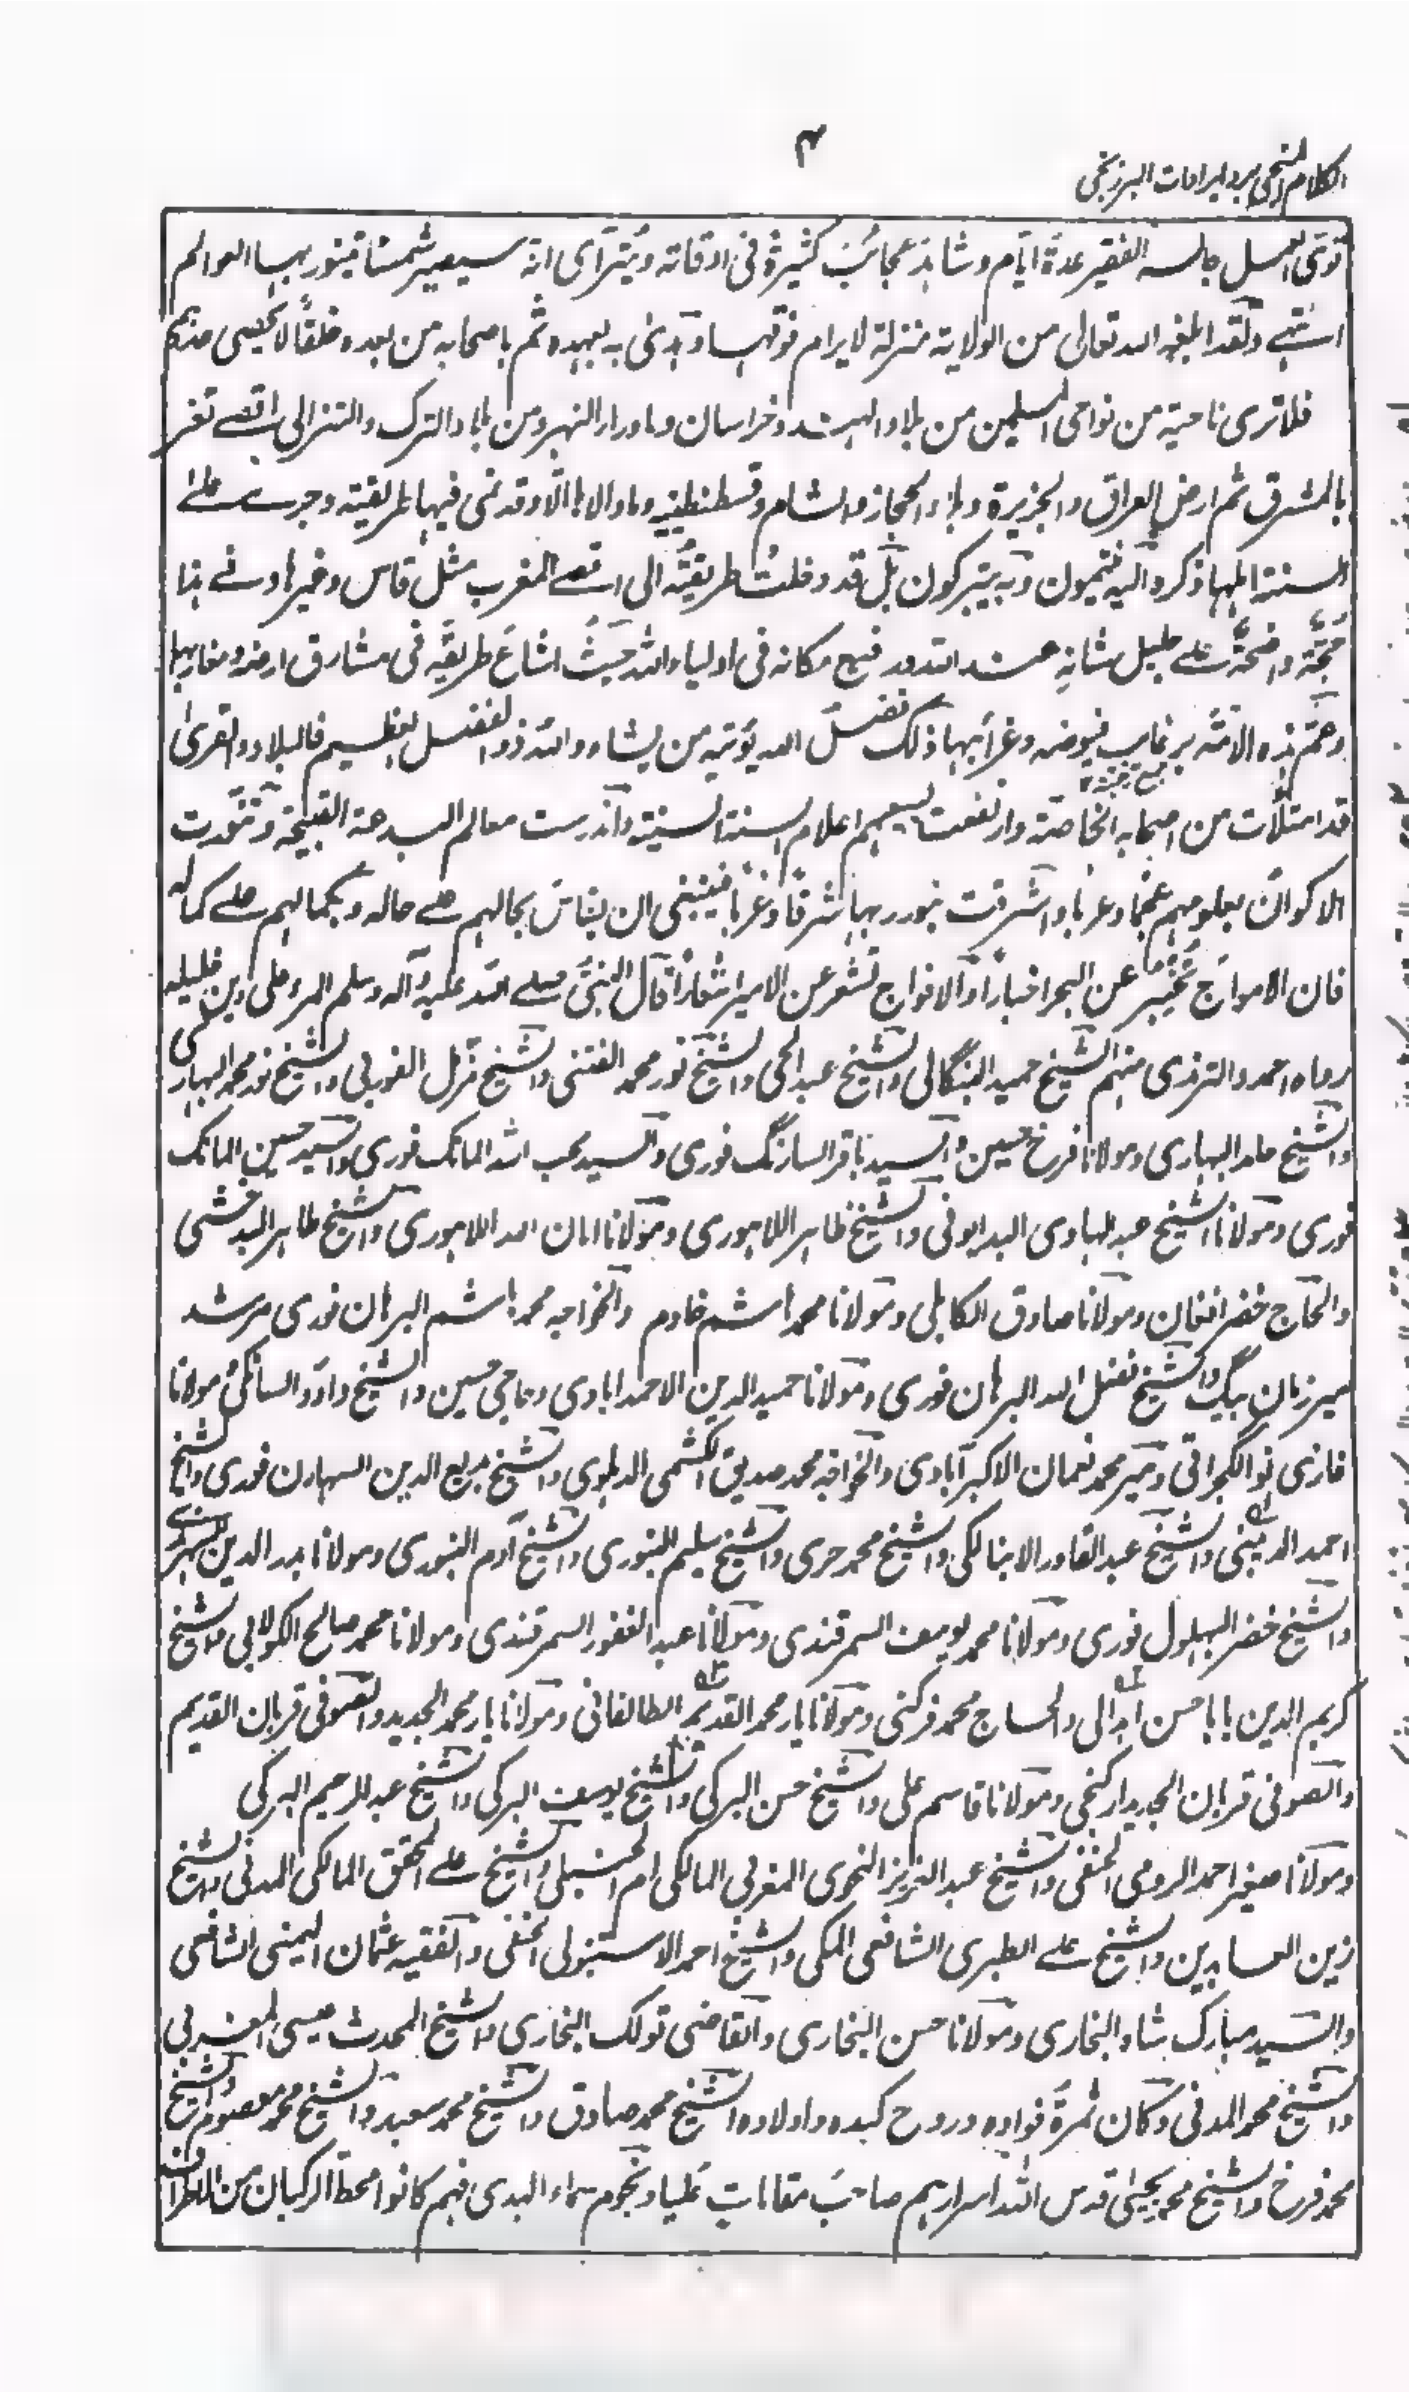 ۴
الكلام المنجي برد ايرادات البرزنجي
قوى العمل جالسه الفقير عدة ايام وشاهد عجائب كثيرة في اوقاته ويترآى انه سيصير شمسا تتنور بها العوالم
انتهى ولقد ابلغه الله تعالى من الولاية منزلة لا يرام فوقها وهدى به بعهده ثم باصحابه من بعده خلقا لا يحصى عددهم
فلا ترى ناحية من نواحي المسلمين من بلاد الهند وخراسان وما وراء النهر ومن بلاد الترك والتتر الى اقصى ثغر
بالمشرق ثم ارض العراق والجزيرة وبلاد الحجاز والشام وقسطنطينيه وما والاها الا وقد نمى فيها طريقته وجرى على
السنة اهلها ذكره اليه ينتمون وبه يتبركون بل قد دخلت طريقته الى اقصى المغرب مثل فاس وغيرها وفي هذا
حجة واضحة على جليل شانه عند الله ورفيع مكانه في اولياء الله حيث اشاع طريقه في مشارق ارضه ومغاربها
وعم هذه الامة برغايب فيوضه وغرائبها ذلك فضل الله يؤتيه من يشاء والله ذو الفضل العظيم فالبلاد والقرى
قد امتلأت من اصحابه الخاصة وارتفعت بسعيهم اعلام السنة السنية واندرست معالم البدعة القبيحة وتنورت
الاكوان بعلومهم عجما وعربا واشرقت بنورها شرقا وغربا فينبغي ان يقاس بحالهم على حاله وبكمالهم على كماله
فان الامواج تخبر عن البحر اخبارا والافواج تشعر عن الامير اشعارا قال النبي صلى الله عليه وآله وسلم المرء على دين خليله
رواه احمد والترمذي منهم الشيخ حميد البنگالي والشيخ عبد الحي والشيخ نور محمد الفتني والشيخ مزمل الفوربي والشيخ نور محمد البهاري
والشيخ حامد البهاري ومولانا فرخ حسين والسيد باقر السارنگ فوري والسيد محب الله المانك فوري والسيد حسين المانك
فوري ومولانا الشيخ عبد الهادي البدايوني والشيخ طاهر اللاهوري ومولانا امان الله اللاهوري والشيخ طاهر البدخشي
والحاج خضر افغان ومولانا صادق الكابلي ومولانا محمد هاشم خادم والخواجه محمد هاشم البرهان فوري مرشد
مير زمان بيگ والشيخ فضل الله البرهان فوري ومولانا حميد الدين الاحمدابادي وحاجي حسين والشيخ داود السانكي ومولانا
غازي نو الگجراتي ومير محمد نعمان الاكبرآبادي والخواجه محمد صديق الكشمي الدهلوي والشيخ بديع الدين السهارن فوري والشيخ
احمد الديبني والشيخ عبد القادر الانبالكي والشيخ محمد حري والشيخ سليم البنوري والشيخ آدم البنوري ومولانا بدر الدين السهرندي
والشيخ خضر البهلول فوري ومولانا محمد يوسف السمرقندي ومولانا عبد الغفور السمرقندي ومولانا محمد صالح الكولابي والشيخ
كريم الدين بابا حسن ابدالي والحاج محمد فركني ومولانا يار محمد القديم الطالقاني ومولانا يار محمد الجديد والصوفي قربان القديم
والصوفي قربان الجديد اركنجي ومولانا قاسم علي والشيخ حسن البركي والشيخ يوسف البركي والشيخ عبد الرحيم البركي
ومولانا صغير احمد الرومي الحنفي والشيخ عبد العزيز النحوي المغربي المالكي ام الحنبلي والشيخ علي المحقق المالكي المدني والشيخ
زين العابدين والشيخ علي الطبري الشافعي المكي والشيخ احمد الاستنبولي الحنفي والفقيه عثمان اليمني الشافعي
والسيد مبارك شاه البخاري ومولانا حسن البخاري والقاضي تولك البخاري والشيخ المحدث عيسى المغربي
والشيخ محمد المدني وكان ثمرة فؤاده وروح كبده واولاده الشيخ محمد صادق والشيخ محمد سعيد والشيخ محمد معصوم والشيخ
محمد فرخ والشيخ محمد يحيى قدس الله اسرارهم صاحب مقامات عليا ونجوم سماء الهدى فهم كانوا محط الركبان من